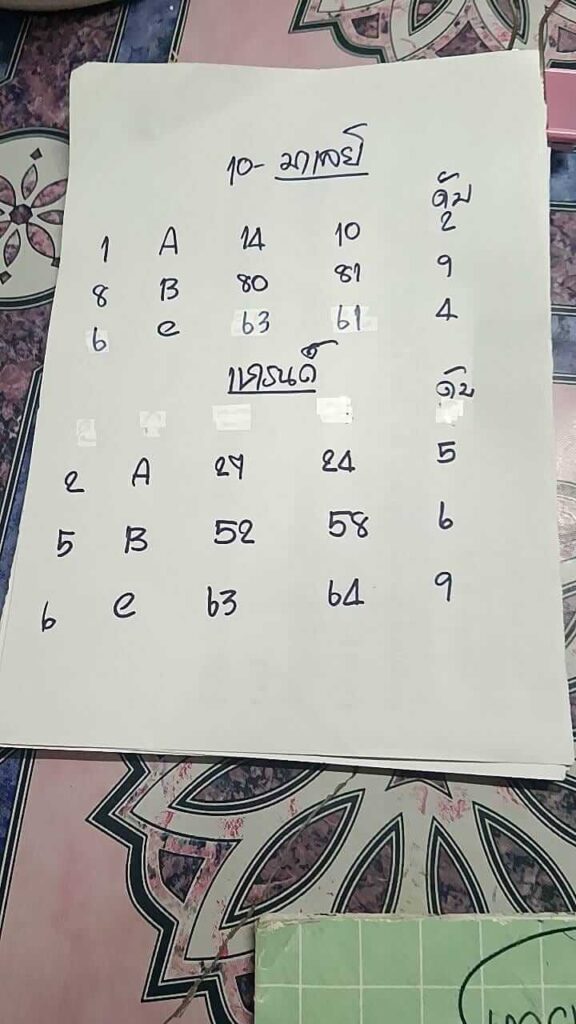 10- มาเลย์
ดับ
1 A 14 10 2
8 B 80 81 9
6 C 63 61 4
แกรนด์
ดับ
2 A 27 24 5
5 B 52 58 6
6 C 63 64 9